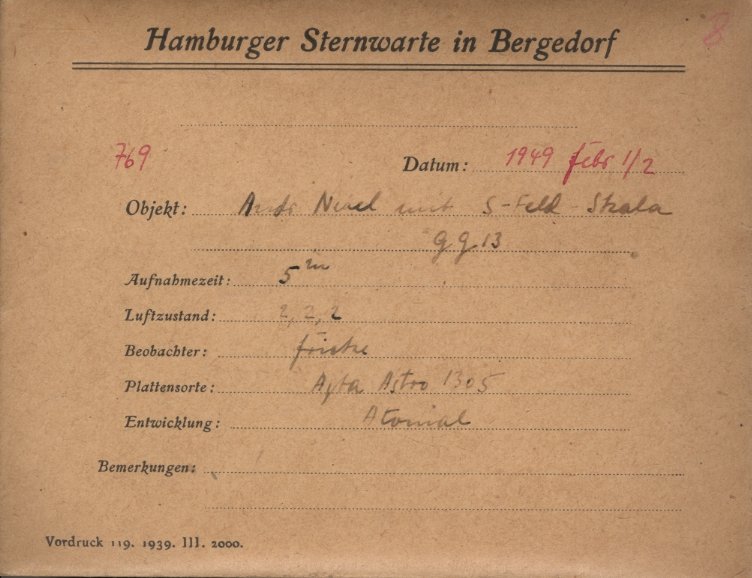 Hamburger Sternwarte in Bergedorf
769
Datum: 1949 febr 1/2
Objekt: Andr Nebel mit S-Feld-Skala
gg 13
Aufnahmezeit: 5 m
Luftzustand: 2, 2, 2
Beobachter:
Plattensorte: Agfa Astro 1305
Entwicklung: Atomal
Bemerkungen:
Vordruck 119. 1939. III. 2000.